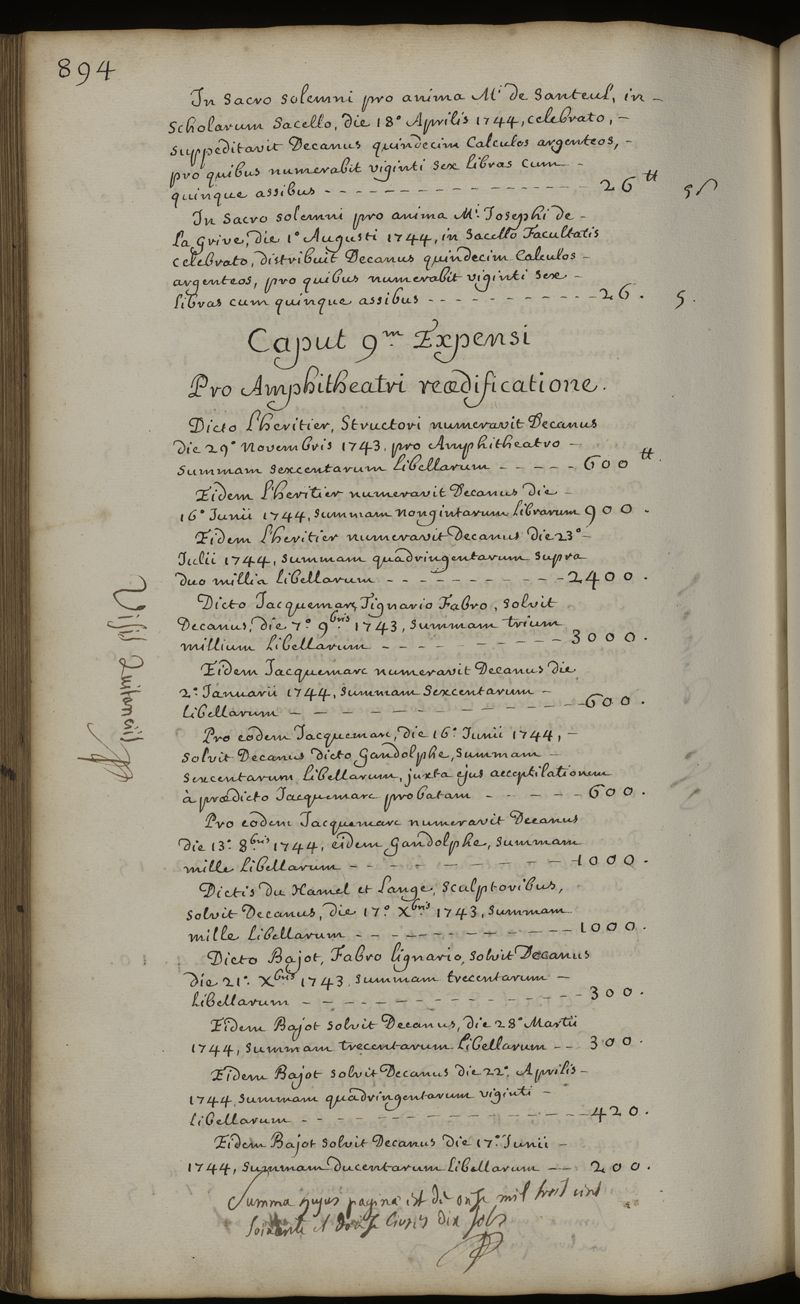 894
In Sacro Solemni pro anima Mi. de Santeul, in –
Scholarum Sacello, die 18° Aprilis 1744, celebrato, –
Suppeditavit Decanus quindecim Calculos argenteos, –
pro quibus numerabit viginti sex libras cum –
quinque assibus - - - - - - - - - - - - - - - 26 tt 5 s
In Sacro Solemni pro anima Mi. Josephi de –
La Grive, die 1° Augusti 1744, in Sacello Facultatis
Celebrato, distribuit Decanus quindecim Calculos –
argenteos, pro quibus numerabit viginti sex –
libras cum quinque assibus - - - - - - - - - - - 26. 5.
Caput 9m. Expensi
Pro Amphitheatri reædificatione.
Dicto Lheritier, Structori numeravit Decanus
die 29° Novembris 1743, pro Amphitheatro –
Summam Sexcentarum Libellarum - - - - - 600 tt.
Eidem Lheritier numeravit Decanus die –
16° Junii 1744, Summam nongintarum librarum 900.
Eidem Lheritier numeravit Decanus die 23° –
Julii 1744, Summam quadringentarum Supra
duo millia Libellarum - - - - - - - - - - 2400.
Dicto Jacquemarc, Tignario Fabro, solvit
Decanus, die 7° 9bris 1743, Summam trium
millium Libellarum - - - - - - - - - 3000.
Eidem Jacquemarc numeravit Decanus die
2° Januarii 1744, Summam Sexcentarum –
Libellarum - - - - - - - - - - - - - - 600.
Pro eodem Jacquemarc, die 16° Junii 1744, –
Solvit Decanus dicto Gandolphe, Summam –
Sexcentarum Libellarum, juxta ejus acceptilationem
à prædicto Jacquemarc probatam - - - - - - 600.
Pro eodem Jacquemarc numeravit Decanus
die 13° 8bris 1744, eidem Gandolphe, Summam
mille Libellarum - - - - - - - - - - - 1000.
Dictis du Hamel et Lange, Sculptoribus,
solvit Decanus, die 17° Xbris 1743, Summam
mille Libellarum - - - - - - - - - - - 1000.
Dicto Bajot, Fabro lignario, solvit Decanus
die 21° Xbris 1743, Summam trecentarum –
Libellarum - - - - - - - - - - - - - - 300.
Eidem Bajot solvit Decanus, die 28° Martii
1744, Summam trecentarum Libellarum - - 300.
Eidem Bajot solvit Decanus die 22° Aprilis –
1744, Summam quadringentarum viginti –
Libellarum - - - - - - - - - - - - - - 420.
Eidem Bajot solvit Decanus die 17° Junii –
1744, Summam Ducentarum Libellarum - - 200.
Summa hujus pagina est de onze mil trois cent
soixante et douze livres dix sols
Visis Quitanciis